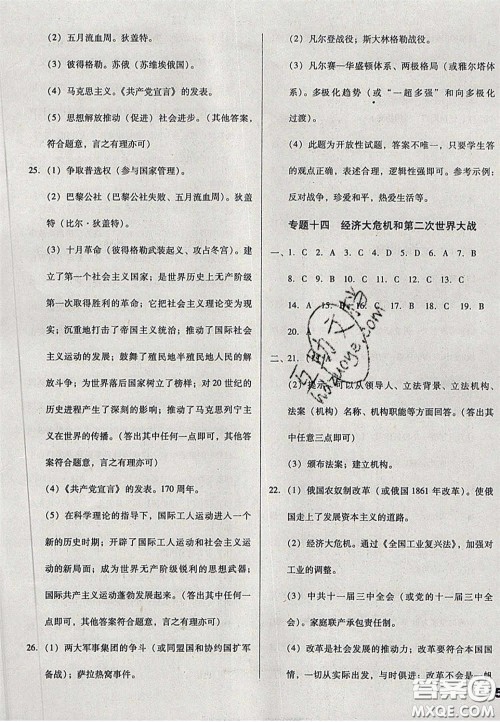 (2) 五月流血周。狄盖特。
(3) 彼得格勒。苏俄（苏维埃俄国）。
(4) 马克思主义。《共产党宣言》的发表。
(5) 思想解放推动（促进）社会进步。（其他答案，
符合题意，言之有理亦可）
25. (1) 争取普选权（参与国家管理）。
(2) 巴黎公社（巴黎公社失败、五月流血周）。狄盖特
（比尔·狄盖特）。
(3) 十月革命（彼得格勒武装起义、攻占冬宫）。建
立了第一个社会主义国家，是世界历史上无产阶级
第一次取得胜利的革命；它把社会主义理论变为现
实；沉重地打击了帝国主义统治；推动了国际社会
主义运动的发展；鼓舞了殖民地半殖民地人民的解
放斗争；为世界落后国家树立了榜样；对20世纪的
历史进程产生了深刻的影响；推动了马克思列宁主
义在世界的传播。（答出其中任何一点即可，其他
答案符合题意，言之有理亦可）
(4)《共产党宣言》的发表。170周年。
(5) 在科学理论的指导下，国际工人运动进入一个
新的历史时期；开辟了国际工人运动和社会主义运
动的新局面；成为世界无产阶级的思想武器；
国际共产主义运动蓬勃发展起来。（答出其中任何
一点即可）
26. (1) 两大军事集团的争斗（或同盟国和协约国扩军
备战）；萨拉热窝事件。
(2) 凡尔登战役；斯大林格勒战役。
(3) 凡尔赛—华盛顿体系、两极格局（或雅尔塔体
系）。多极化趋势（或“一超多强”和向多极化
过渡）。
(4) 此题为开放性试题，答案不唯一，只要学生答
的观点正确，表述合理、逻辑性强即可。示例：
反对战争，珍爱和平，热爱生活等。
专题十四 经济大危机和第二次世界大战
一、1. C 2. A
8. C 9. C
14. A 15. 16. C 17. C 18. B 19. B
20. A
二、21.
(2) 提示：可以从领导人、立法背景、立法机构、
法案（机构）名称、机构职能等方面回答。（答出其
中任意三点即可）
(3) 颁布法案；建立机构。
22. (1) 俄国农奴制改革（或俄国1861年改革）。使俄
国走上了发展资本主义的道路。
(2) 经济大危机。通过《全国工业复兴法》，加强对
工业的调整。
(3) 中共十一届三中全会（或十一届三中全
会）。家庭联产承包责任制。
(4) 改革是社会发展的动力；改革要从本国国
情，一切从实际出发，与时俱进；改革不会是一帆
答案圈
MXQE.COM